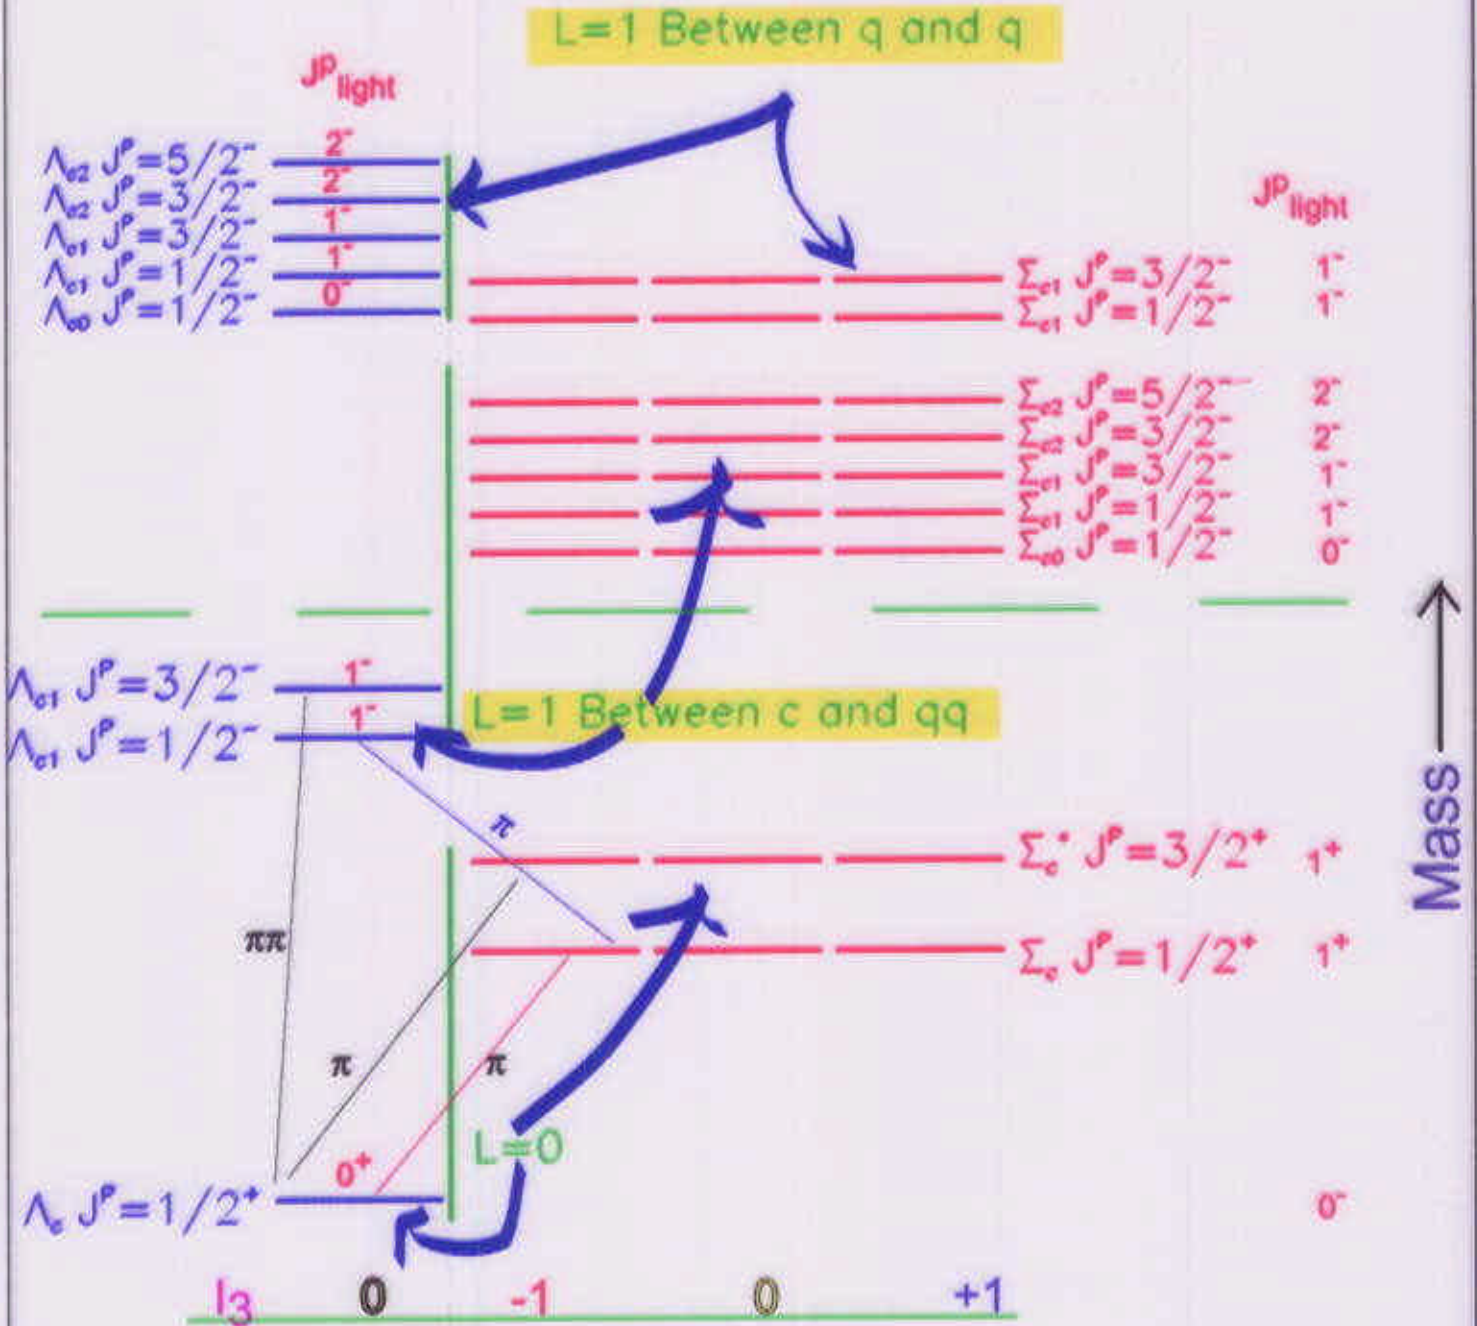 L=1 Between q and q
Jᴾlight
Λc2 Jᴾ=5/2⁻ 2⁻
Λc2 Jᴾ=3/2⁻ 2⁻
Λc1 Jᴾ=3/2⁻ 1⁻
Λc1 Jᴾ=1/2⁻ 1⁻
Λc0 Jᴾ=1/2⁻ 0⁻
Jᴾlight
Σc1 Jᴾ=3/2⁻ 1⁻
Σc1 Jᴾ=1/2⁻ 1⁻
Σc2 Jᴾ=5/2⁻ 2⁻
Σc2 Jᴾ=3/2⁻ 2⁻
Σc1 Jᴾ=3/2⁻ 1⁻
Σc1 Jᴾ=1/2⁻ 1⁻
Σc0 Jᴾ=1/2⁻ 0⁻
Λc1 Jᴾ=3/2⁻ 1⁻
Λc1 Jᴾ=1/2⁻ 1⁻
L=1 Between c and qq
Mass
π
Σc* Jᴾ=3/2⁺ 1⁺
ππ
Σc Jᴾ=1/2⁺ 1⁺
π π
L=0
Λc Jᴾ=1/2⁺ 0⁺ 0⁻
I₃ 0 -1 0 +1